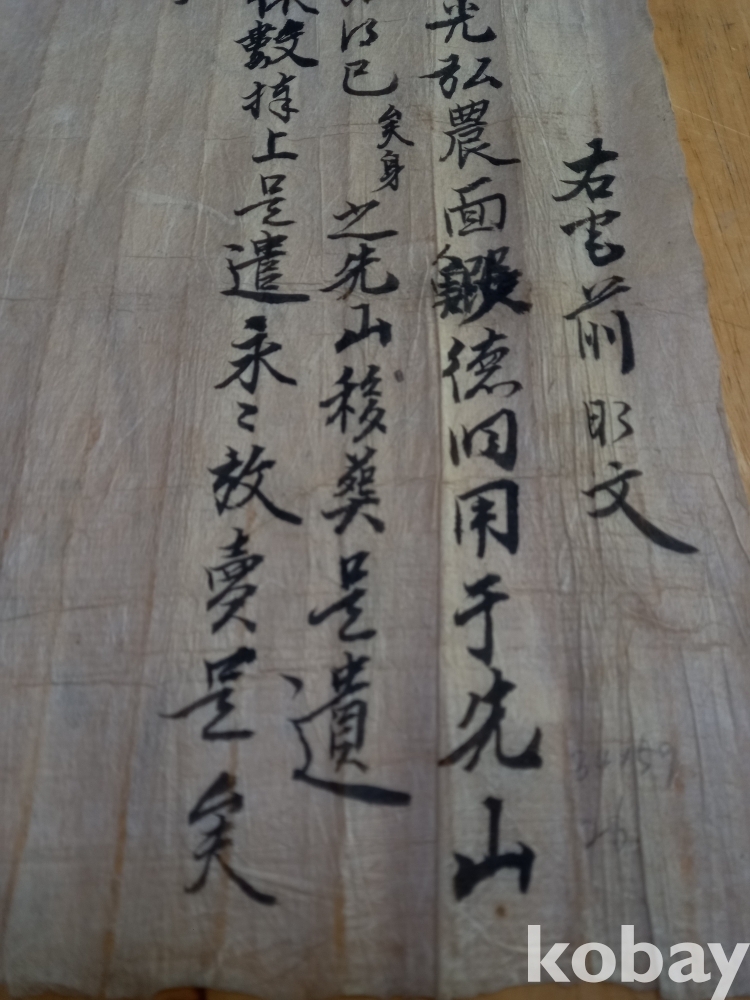 右宅前明文
光弘農面鰕德用于先山
得已矣身之先山移葬是遺
數捧上是遣永〻放賣是矣
kobay